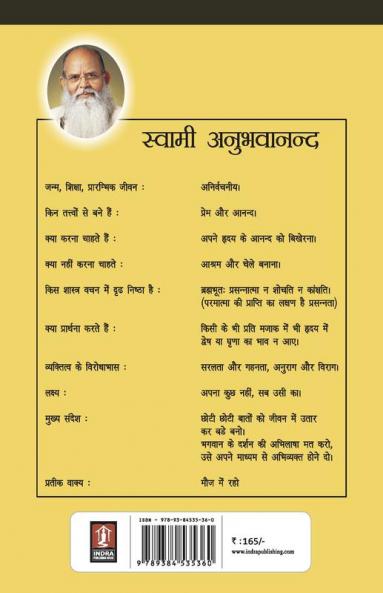 स्वामी अनुभवानन्द
जन्म, शिक्षा, प्रारम्भिक जीवन : अनिर्वचनीय।
किन तत्त्वों से बने हैं : प्रेम और आनन्द।
क्या करना चाहते हैं : अपने हृदय के आनन्द को बिखेरना।
क्या नहीं करना चाहते : आश्रम और चेले बनाना।
किस शास्त्र वचन में दृढ निष्ठा है : ब्रह्मभूतः प्रसन्नात्मा न शोचति न कांक्षति।
(परमात्मा की प्राप्ति का लक्षण है प्रसन्नता)
क्या प्रार्थना करते हैं : किसी के भी प्रति मजाक में भी हृदय में
द्वेष या घृणा का भाव न आए।
व्यक्तित्व के विरोधाभास : सरलता और गहनता, अनुराग और विराग।
लक्ष्य : अपना कुछ नहीं, सब उसी का।
मुख्य संदेश : छोटी छोटी बातों को जीवन में उतार
कर बडे बनो।
भगवान के दर्शन की अभिलाषा मत करो,
उसे अपने माध्यम से अभिव्यक्त होने दो।
प्रतीक वाक्य : मौज में रहो
ISBN - 978-93-84535-36-0
INDRA
PUBLISHING HOUSE
9789384535360
₹ :165/-
www.indrapublishing.com